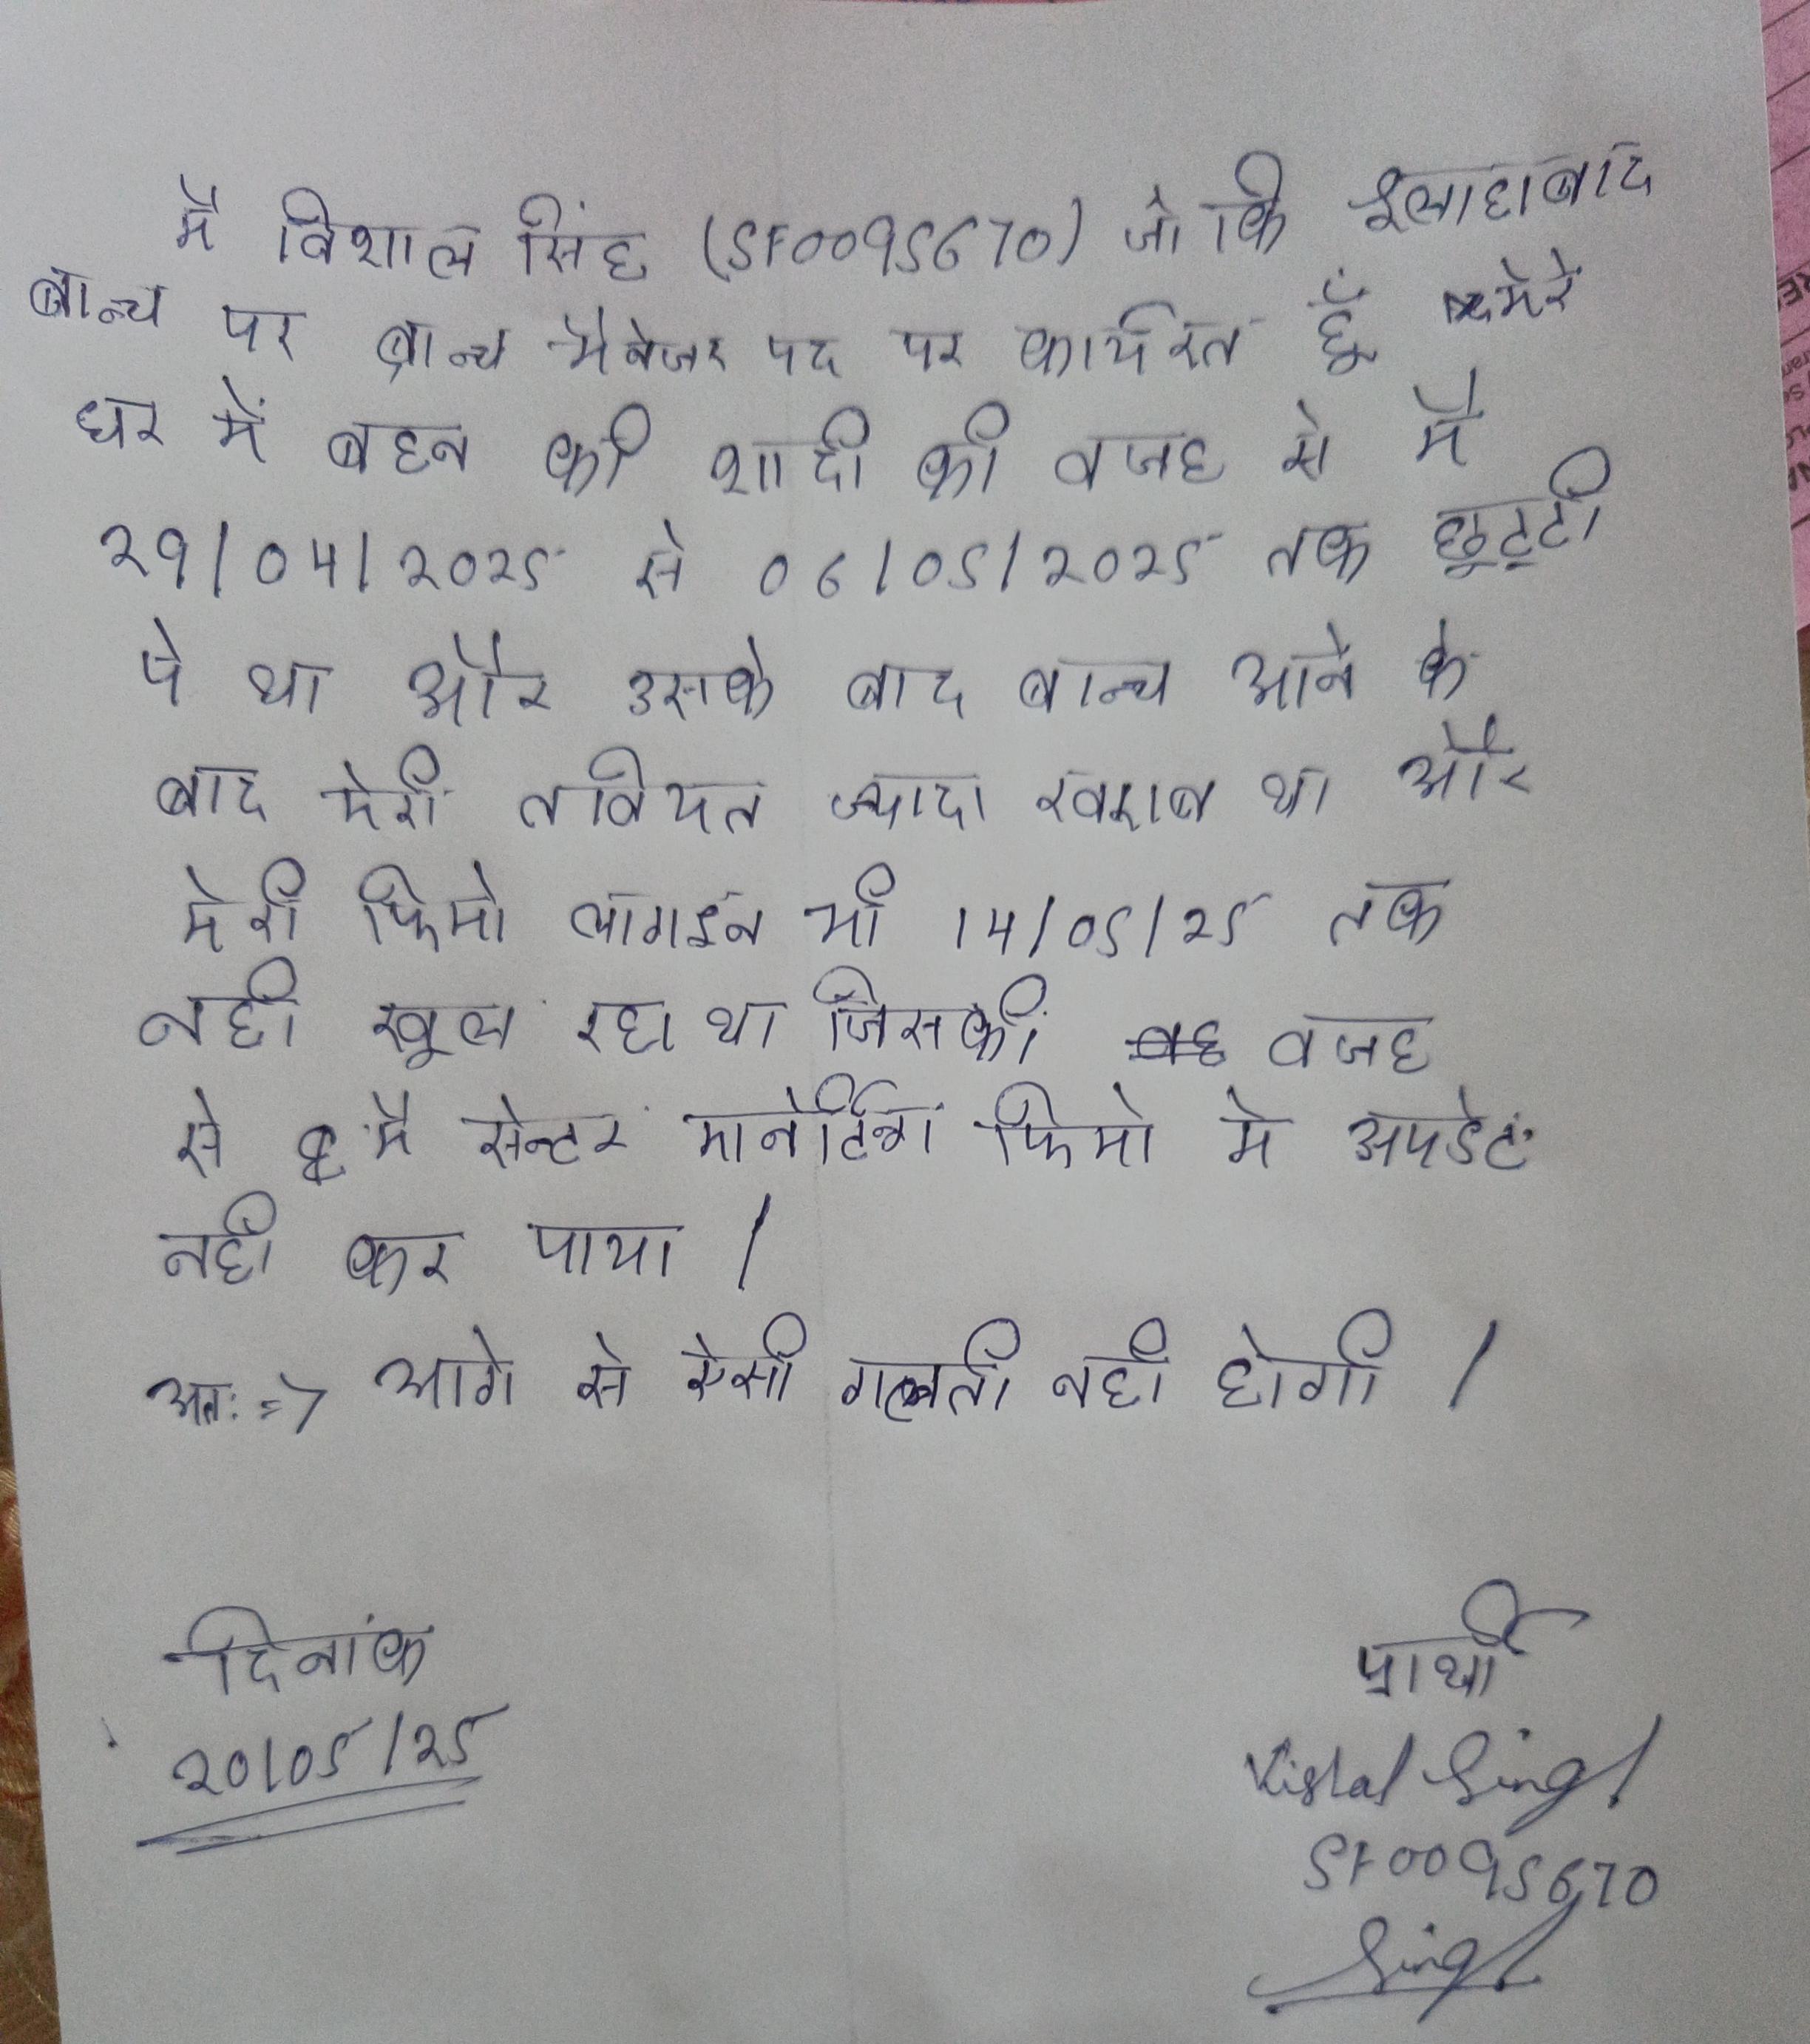 मै विशाल सिंह (SF0095670) जो कि इलाहाबाद
ब्रान्च पर ब्रान्च मैनेजर पद पर कार्यरत हूँ मेरे
घर में बहन की शादी की वजह से मै
29/04/2025 से 06/05/2025 तक छुट्टी
पे था और उसके बाद ब्रान्च आने के
बाद मेरी तवियत ज्यादा खराब था और
मेरी फिमो लागइन भी 14/05/25 तक
नही खूल रहा था जिसकी वजह
से मै सेन्टर मानेटिंग फिमो मे अपडेट
नही कर पाया |
अतः => आगे से ऐसी गलती नही होगी |
दिनांक
20/05/25
प्रार्थी
Vishal Singh
SF0095670
Singh